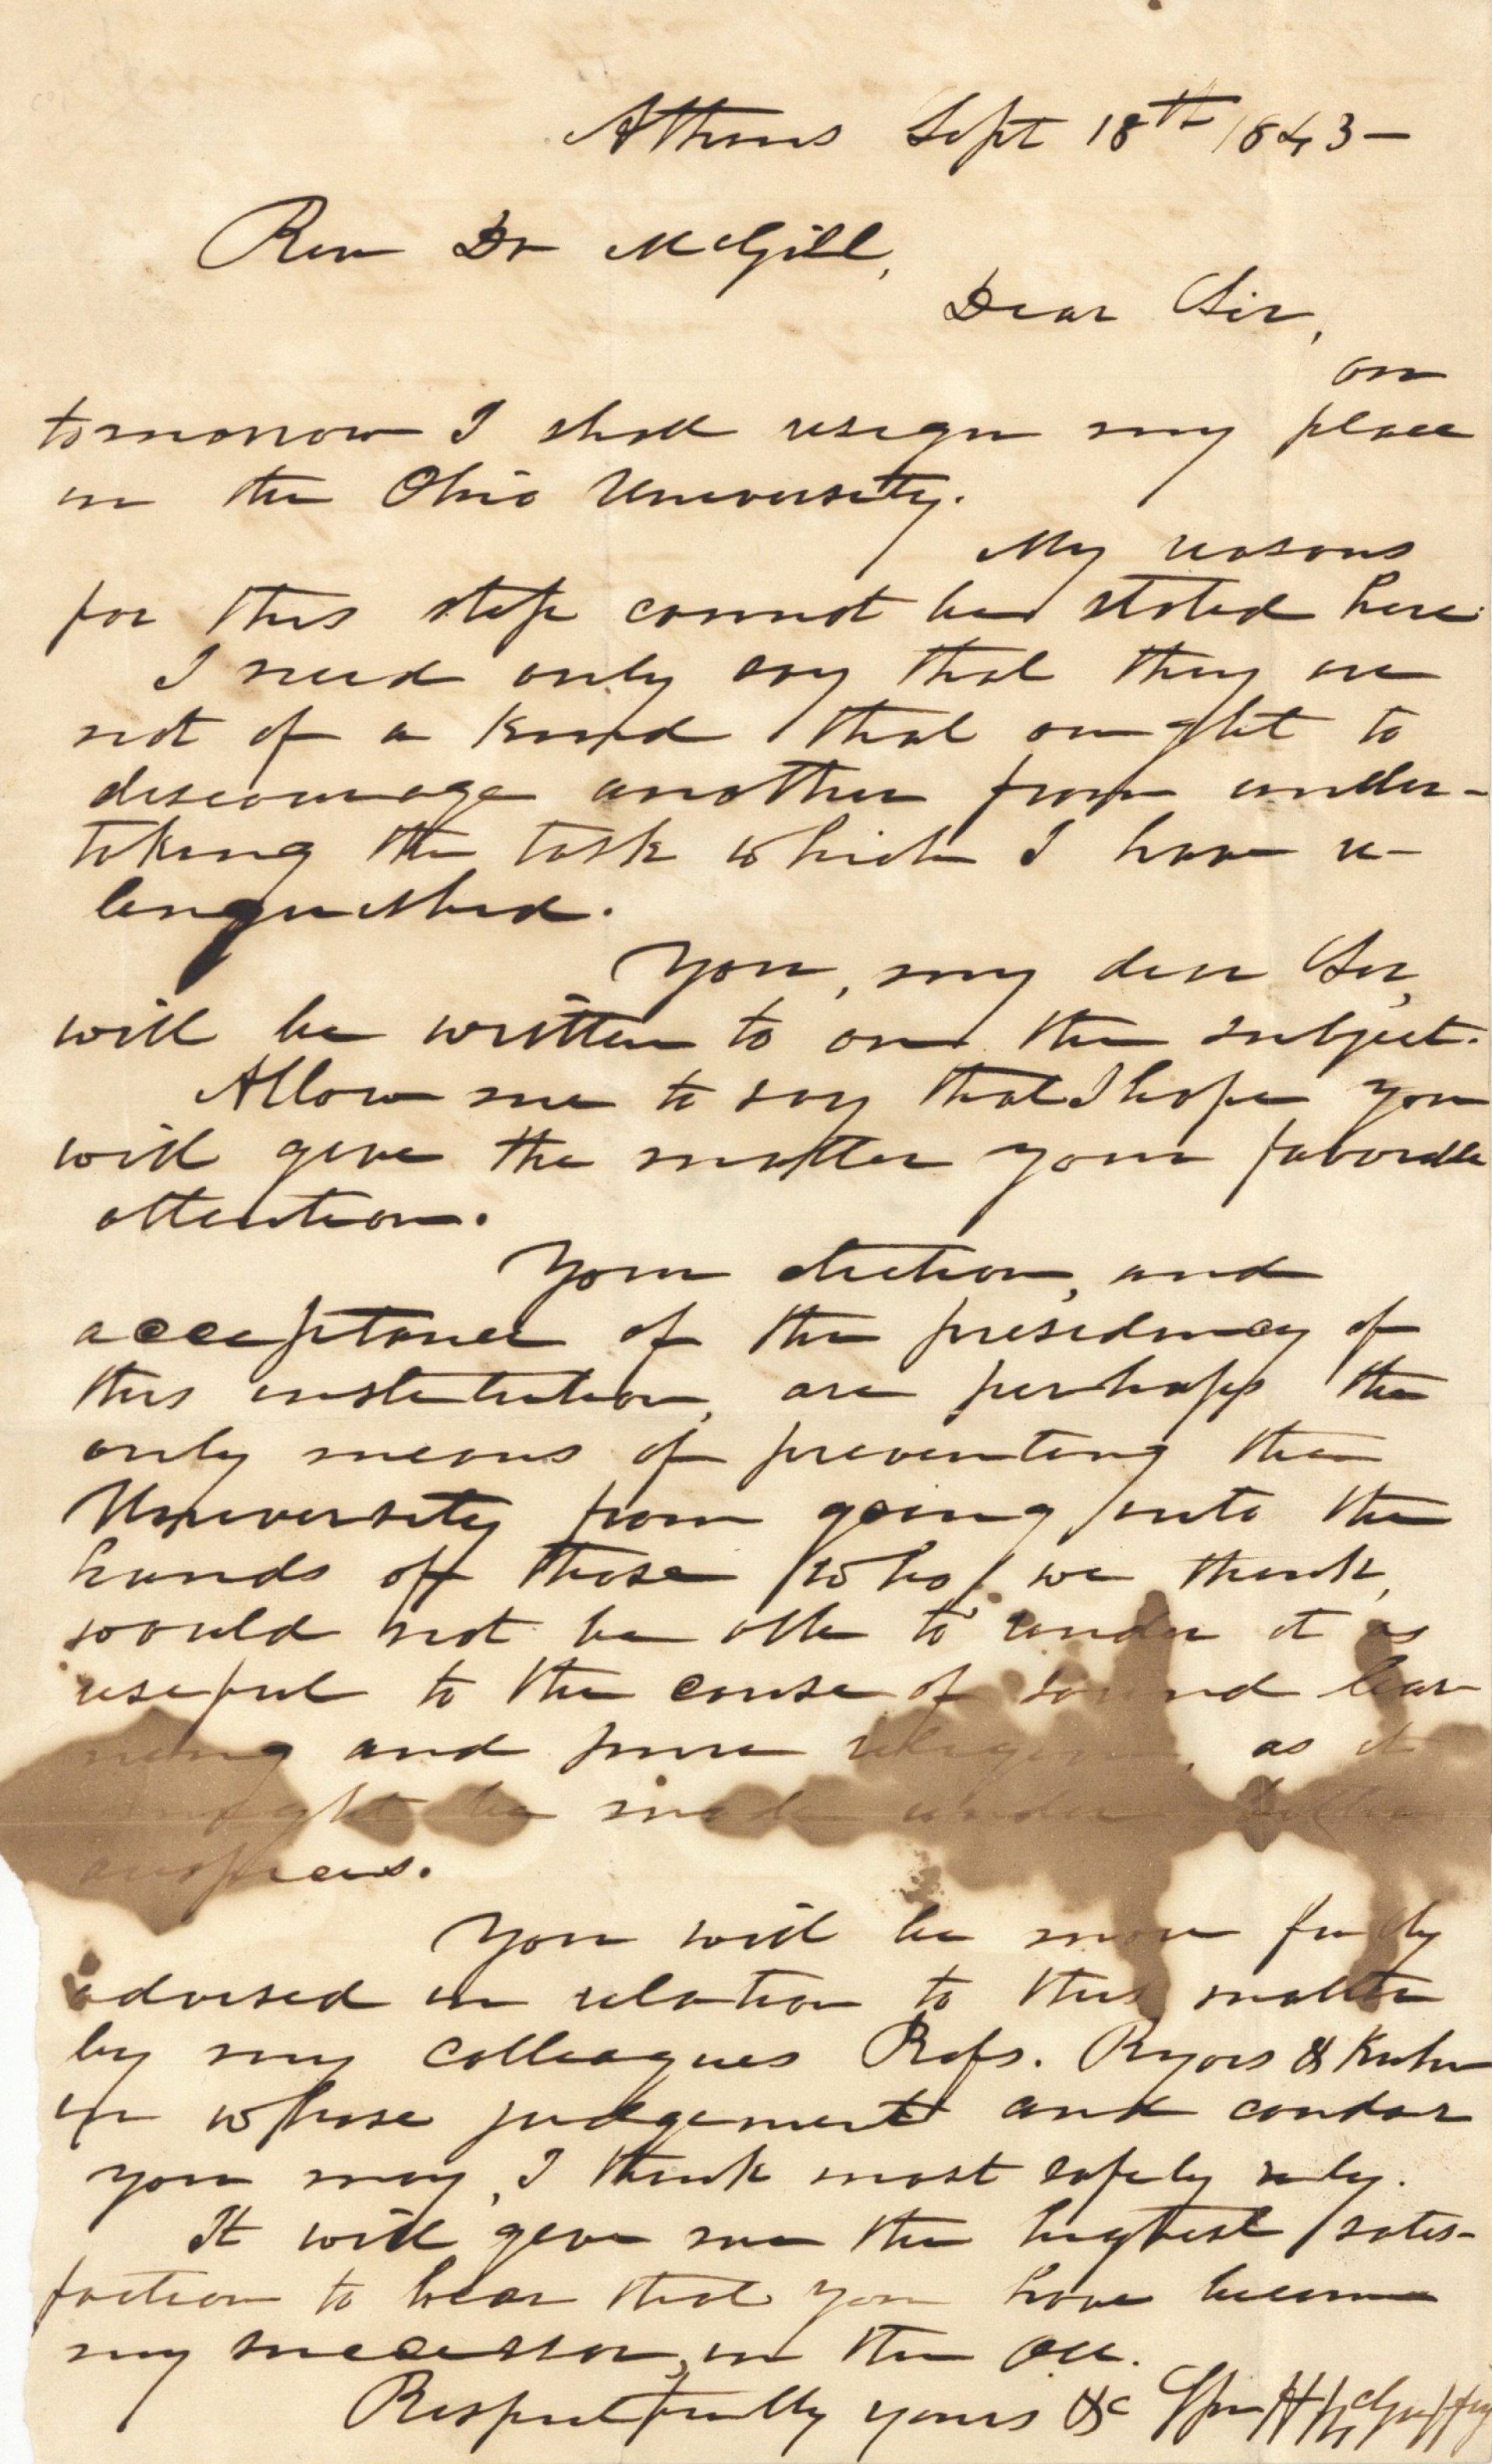 Athens Sept 18th 1843-
Rev Dr McGill,
Dear Sir,
on
tomorrow I shall resign my place
in the Ohio University.
My reasons
for this step cannot be stated here.
I need only say that they are
not of a kind that ought to
discourage another from under-
taking the task which I have re-
linquished.
You, my dear Sir,
will be written to on the subject.
Allow me to say that I hope you
will give the matter your favorable
attention.
Your election, and
acceptance of the presidency of
this institution, are perhaps the
only means of preventing the
University from going into the
hands of those who, we think,
would not be able to render it as
useful to the cause of sound lear
ning and pure religion, as it
might be made under better
auspices.
You will be more fully
advised in relation to this matter
by my colleagues Profs. Ryors & Kuhn
in whose judgement and candor
you may, I think most safely rely.
It will give me the highest satis-
faction to hear that you have become
my successor, in the O.U.
Respectfully yours &c Wm H McGuffey